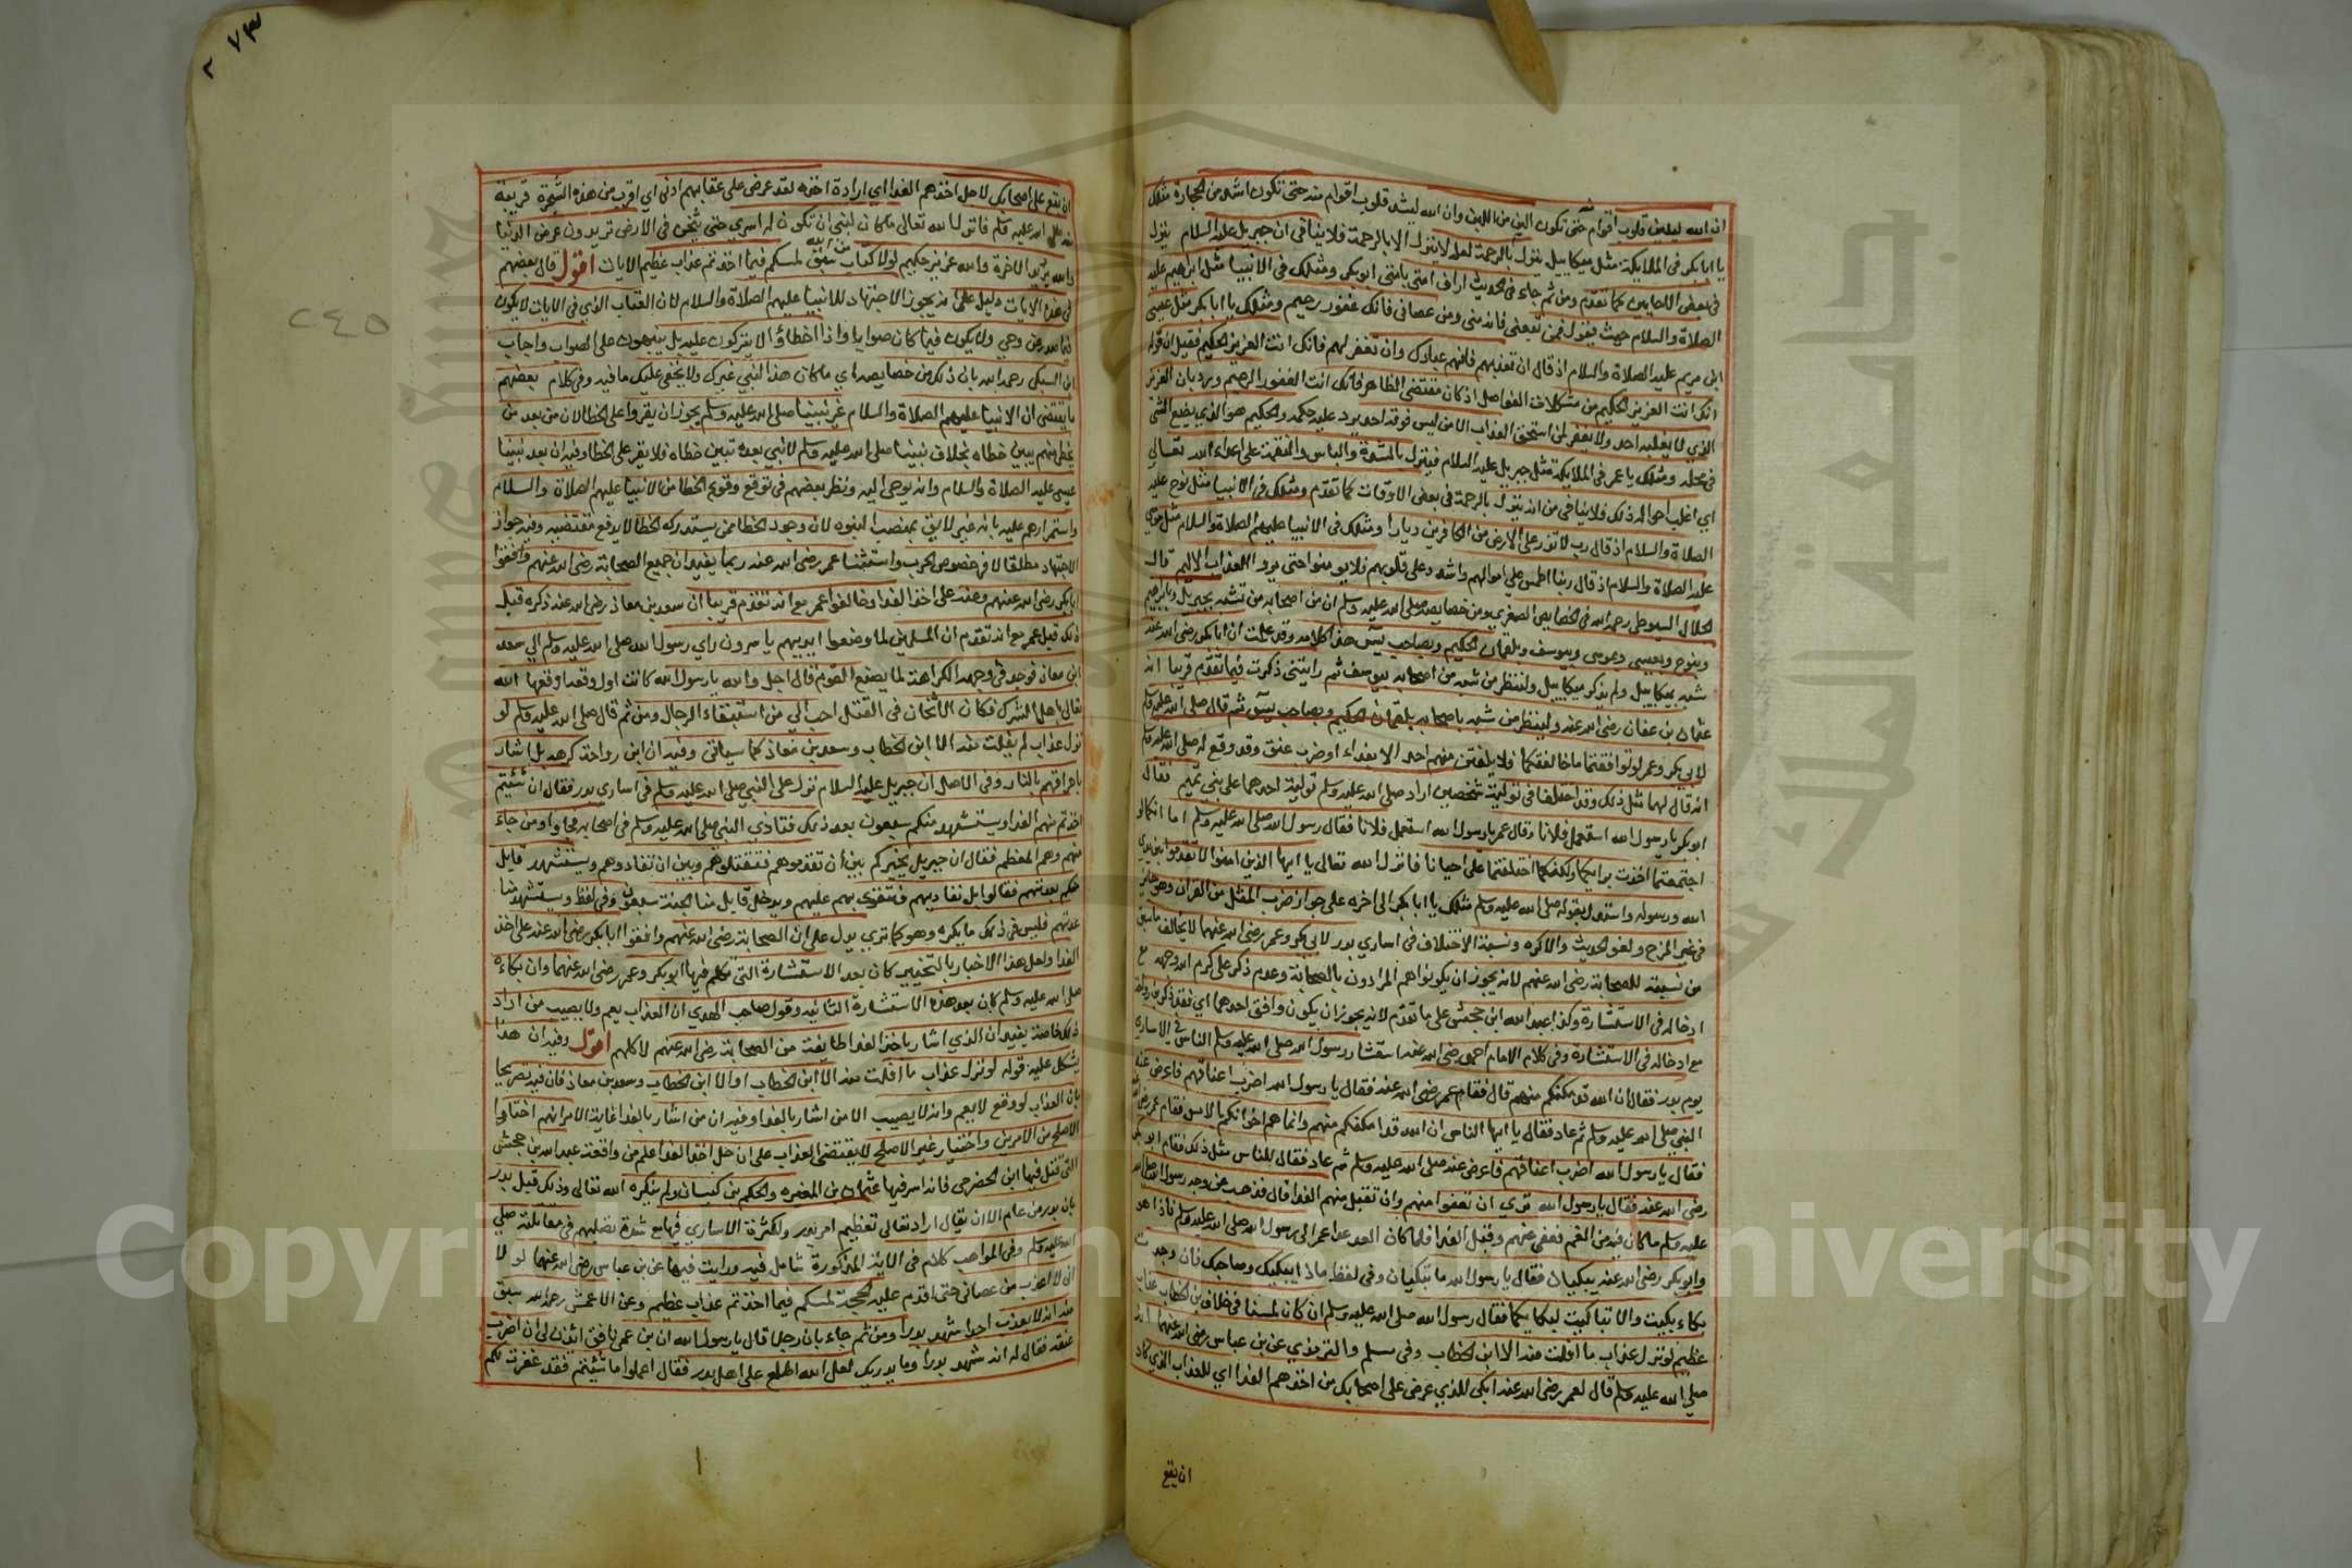 ان الله ليلين قلوب اقوام حتى تكون الين من اللبن وان الله ليشد قلوب اقوام منه حتى تكون اشد من الحجارة مثلك
يا ابا بكر في الملايكة مثل ميكاييل ينزل بالرحمة لعله لا ينزل الا بالرحمة فلا ينافي ان جبريل عليه السلام ينزل
في بعض الاحايين كما تقدم ومن ثم جاء في الحديث اراف امتي بامتي ابو بكر ومثلك في الانبيا مثل ابراهيم عليه
الصلاة والسلام حيث يقول فمن تبعني فانه مني ومن عصاني فانك غفور رحيم ومثلك يا ابا بكر مثل عيسى
ابن مريم عليه الصلاة والسلام اذ قال ان تعذبهم فانهم عبادك وان تغفر لهم فانك انت العزيز الحكيم فقيل ان قوله
انك انت العزيز الحكيم من مشكلات الفواصل اذ كان مقتضى الظاهر فانك انت الغفور الرحيم ويرد بان العزيز
الذي لا يغلبه احد ولا يغفر لمن استحق العذاب الا من ليس فوقه احد يرد عليه حكمه والحكيم هو الذي يضع الشي
في محله ومثلك يا عمر في الملايكة مثل جبريل عليه السلام فينزل بالشدة والباس والنقمة على اعداء الله تعالى
اي اغلب احواله ذلك فلا ينافي من انه ينزل بالرحمة في بعض الاوقات كما تقدم ومثلك في الانبيا مثل نوح عليه
الصلاة والسلام اذ قال رب لا تذر على الارض من الكافرين ديارا ومثلك في الانبيا عليهم الصلاة والسلام مثل موسى
عليه الصلاة والسلام اذ قال ربنا اطمس على اموالهم واشدد على قلوبهم فلا يومنوا حتى يروا العذاب الاليم قال
الجلال السيوطي رحمه الله في الخصايص الصغرى ومن خصايصه صلى الله عليه وسلم ان من اصحابه من تشبه بجبريل وبابراهيم
وبنوح وبعيسى وبموسى وبيوسف وبلقمان الحكيم وبصاحب يس هذا كلامه وقد علمت ان ابا بكر رضي الله عنه
شبه بميكاييل ولم يذكر ميكاييل ولينظر من شبه من اصحابه بيوسف ثم رايتني ذكرت فيما تقدم قريبا انه
عثمان بن عفان رضي الله عنه ولينظر من شبه باصحابه بلقمان الحكيم وبصاحب يس ثم قال صلى الله عليه وسلم
لابي بكر وعمر لو توافقتما ما خالفتكما فلا يفلتن منهم احد الا بفداء او ضرب عنق وقد وقع له صلى الله عليه وسلم
انه قال لهما مثل ذلك وقد اختلفا في تولية شخصين اراد صلى الله عليه وسلم تولية احدهما على بني تميم فقال
ابو بكر يا رسول الله استعمل فلانا وقال عمر يا رسول الله استعمل فلانا فقال رسول الله صلى الله عليه وسلم اما انكما لو
اجتمعتما اخذت برايكما ولكنكما اختلفتما علي احيانا فانزل الله تعالى يا ايها الذين امنوا لا تقدموا بين يدي
الله ورسوله واستدل بقوله صلى الله عليه وسلم مثلك يا ابا بكر الى اخره على جواز ضرب المثل من القران وهو جايز
في غير المزح ولغو الحديث والاكره ونسبة الاختلاف في اساري بدر لابي بكر وعمر رضي الله عنهما لا يخالف ما سبق
من نسبته للصحابة رضي الله عنهم لانه يجوز ان يكونوا هم المرادون بالصحابة وعدم ذكر علي كرم الله وجهه مع
ادخاله في الاستشارة وكذا عبد الله ابن جحش على ما تقدم لانه يجوز ان يكون وافق احدهما اي
مع ادخاله في الاستشارة وفي كلام الامام احمد رضي الله عنه استشار رسول الله صلى الله عليه وسلم الناس في الاساري
يوم بدر فقال ان الله قد مكنكم منهم قال فقام عمر رضي الله عنه فقال يا رسول الله اضرب اعناقهم فاعرض عنه
النبي صلى الله عليه وسلم ثم عاد فقال يا ايها الناس ان الله قد امكنكم منهم وانما هم اخوانكم بالامس فقام عمر رضي الله عنه
فقال يا رسول الله اضرب اعناقهم فاعرض عنه صلى الله عليه وسلم ثم عاد فقال للناس مثل ذلك فقام ابو بكر
رضي الله عنه فقال يا رسول الله نري ان تعفوا منهم وان تقبل منهم الفدا قال فذهب عن وجه رسول الله صلى الله
عليه وسلم ما كان فيه من الغم فعفى عنهم وقبل الفدا فلما كان الغد غدا عمر الى رسول الله صلى الله عليه وسلم فاذا هو
وابو بكر رضي الله عنه يبكيان فقال يا رسول الله ما تبكيان وفي لفظ ماذا يبكيك وصاحبك فان وجدت
بكاء بكيت والا تباكيت لبكايكما فقال رسول الله صلى الله عليه وسلم ان كان لمسنا في خلاف بن الخطاب عذاب
عظيم لو نزل عذاب ما افلت منه الا ابن الخطاب وفي مسلم والترمذي عن بن عباس رضي الله عنهما انه
صلى الله عليه وسلم قال لعمر رضي الله عنه ابكي للذي عرض على اصحابك من اخذهم الفدا اي للعذاب الذي كاد
ان يقع
٢٧٣
٢٤٥
ان يقع على اصحابك لاجل اخذهم الفدا اي ارادة اخذه لقد عرض علي عذابهم ادنى اي اقرب من هذه الشجرة قريبة
منه صلى الله عليه وسلم فانزل الله تعالى ما كان لنبي ان تكون له اسرى حتى يثخن في الارض تريدون عرض الدنيا
والله يريد الاخرة والله عزيز حكيم لولا كتاب من الله سبق لمسكم فيما اخذتم عذاب عظيم الايات اقول قال بعضهم
في هذه الايات دليل على انه يجوز الاجتهاد للانبيا عليهم الصلاة والسلام لان العتاب الذي في الايات لا يكون
فيما صدر عن وحي ولا يكون فيما كان صوابا واذا اخطاؤا لا يتركون عليه بل ينبهون على الصواب واجاب
ابن السبكي رحمه الله بان ذلك من خصايصه اي ما كان هذا لنبي غيرك ولا يخفى عليك ما فيه وفي كلام بعضهم
ما يقتضي ان الانبيا عليهم الصلاة والسلام غير نبينا صلى الله عليه وسلم يجوز ان يقروا على الخطا لان من بعد من
يخطي منهم يبين خطاه بخلاف نبينا صلى الله عليه وسلم لا نبي بعده تبين خطاه فلا يقر على الخطا وفيه ان بعد نبينا
عيسى عليه الصلاة والسلام وانه يوحى اليه ونظر بعضهم في توقع وقوع الخطا من الانبيا عليهم الصلاة والسلام
واستمرارهم عليه بانه غير لايق بمنصب النبوه لان وجود الخطا ممن يستدركه الخطا لا يدفع مقتضيه وفيه جواز
الاجتهاد مطلقا لا في خصوص الحرب واستثنا عمر رضي الله عنه ربما يفيد ان جميع الصحابة رضي الله عنهم وافقوا
ابا بكر رضي الله عنهم وعنه على اخذ الفدا وخالفوا عمر مع انه تقدم قريبا ان سعد بن معاذ رضي الله عنه ذكره قبل
ذلك قبل عمر مع انه تقدم ان المسلمين لما وضعوا ايديهم ياسرون راي رسول الله صلى الله عليه وسلم الي سعد
ابن معاذ فوجد في وجهه الكراهة لما يصنع القوم قال اجل والله يا رسول الله كانت اول وقعة اوقعها الله
تعالى باهل الشرك فكان الاثخان في القتل احب الي من استبقاء الرجال ومن ثم قال صلى الله عليه وسلم لو
نزل عذاب لم يفلت منه الا ابن الخطاب وسعد بن معاذ كما سياتي وفيه ان ابن رواحة كرهه بل اشار
باحراقهم بالنار وفي الاصل ان جبريل عليه السلام نزل على النبي صلى الله عليه وسلم في اساري بدر فقال ان شئتم
اخذتم منهم الفدا ويستشهد منكم سبعون بعد ذلك فنادي النبي صلى الله عليه وسلم في اصحابه فجاؤا او من جاء
منهم وهم المعظم فقال ان جبريل يخيركم بين ان تقدموهم فتقتلوهم وبين ان تفادوهم ويستشهد قابل
منكم بعدتهم فقالوا بل نفاديهم فنتقوى بهم عليهم ويدخل قابل منا الجنة سبعون وفي لفظ ويستشهد منا
عدتهم فليس في ذلك ما يكره وهو كما تري يدل على ان الصحابة رضي الله عنهم وافقوا ابا بكر رضي الله عنه على اخذ
الفدا ولعل هذا الاخبار بالتخيير كان بعد الاستشارة التي تكلم فيها ابو بكر وعمر رضي الله عنهما وان بكاءه
صلى الله عليه وسلم كان بعد هذه الاستشارة الثانيه وقول صاحب الهدي ان العذاب يعم ولا يصيب من اراد
ذلك خاصة يفيد ان الذي اشار باخذ الفدا طايفة من الصحابة رضي الله عنهم لا كلهم اقول وفيه ان هذا
يشكل عليه قوله لو نزل عذاب ما افلت منه الا ابن الخطاب او الا ابن الخطاب وسعد بن معاذ فان فيه تصريحا
بان العذاب لو وقع لا يعم وانه لا يصيب الا من اشار بالفدا وفيه ان من اشار بالفدا غاية الامر انهم اختاروا
الاصلح من الامرين واختيار غير الاصلح لا يقتضي العذاب على ان حل اخذ الفدا علم من واقعة عبد الله بن جحش
التي قتل فيها ابن الحضرمي فانه اسر فيها عثمان بن المغيره والحكم بن كيسان ولم ينكره الله تعالى وذلك قبل بدر
بازيد من عام الا ان يقال اراد تعالى تعظيم امر بدر ولكثرة الاساري فيها مع شدة تصلبهم في مقابلته صلى
الله عليه وسلم وفي المواهب كلام في الاية المذكورة تامل فيه ورايت فيها عن بن عباس رضي الله عنهما لو لا
اني لا اعذب من عصاني حتى اقدم عليه الحجة لمسكم فيما اخذتم عذاب عظيم وعن الاعمش رحمه الله سبق
منه انه لا يعذب احدا شهد بدرا ومن ثم جاء بان رجلا قال يا رسول الله ان بن عمي نافق ائذن لي ان اضرب
عنقه فقال له انه شهد بدرا وما يدريك لعل الله اطلع على اهل بدر فقال اعملوا ما شئتم فقد غفرت لكم